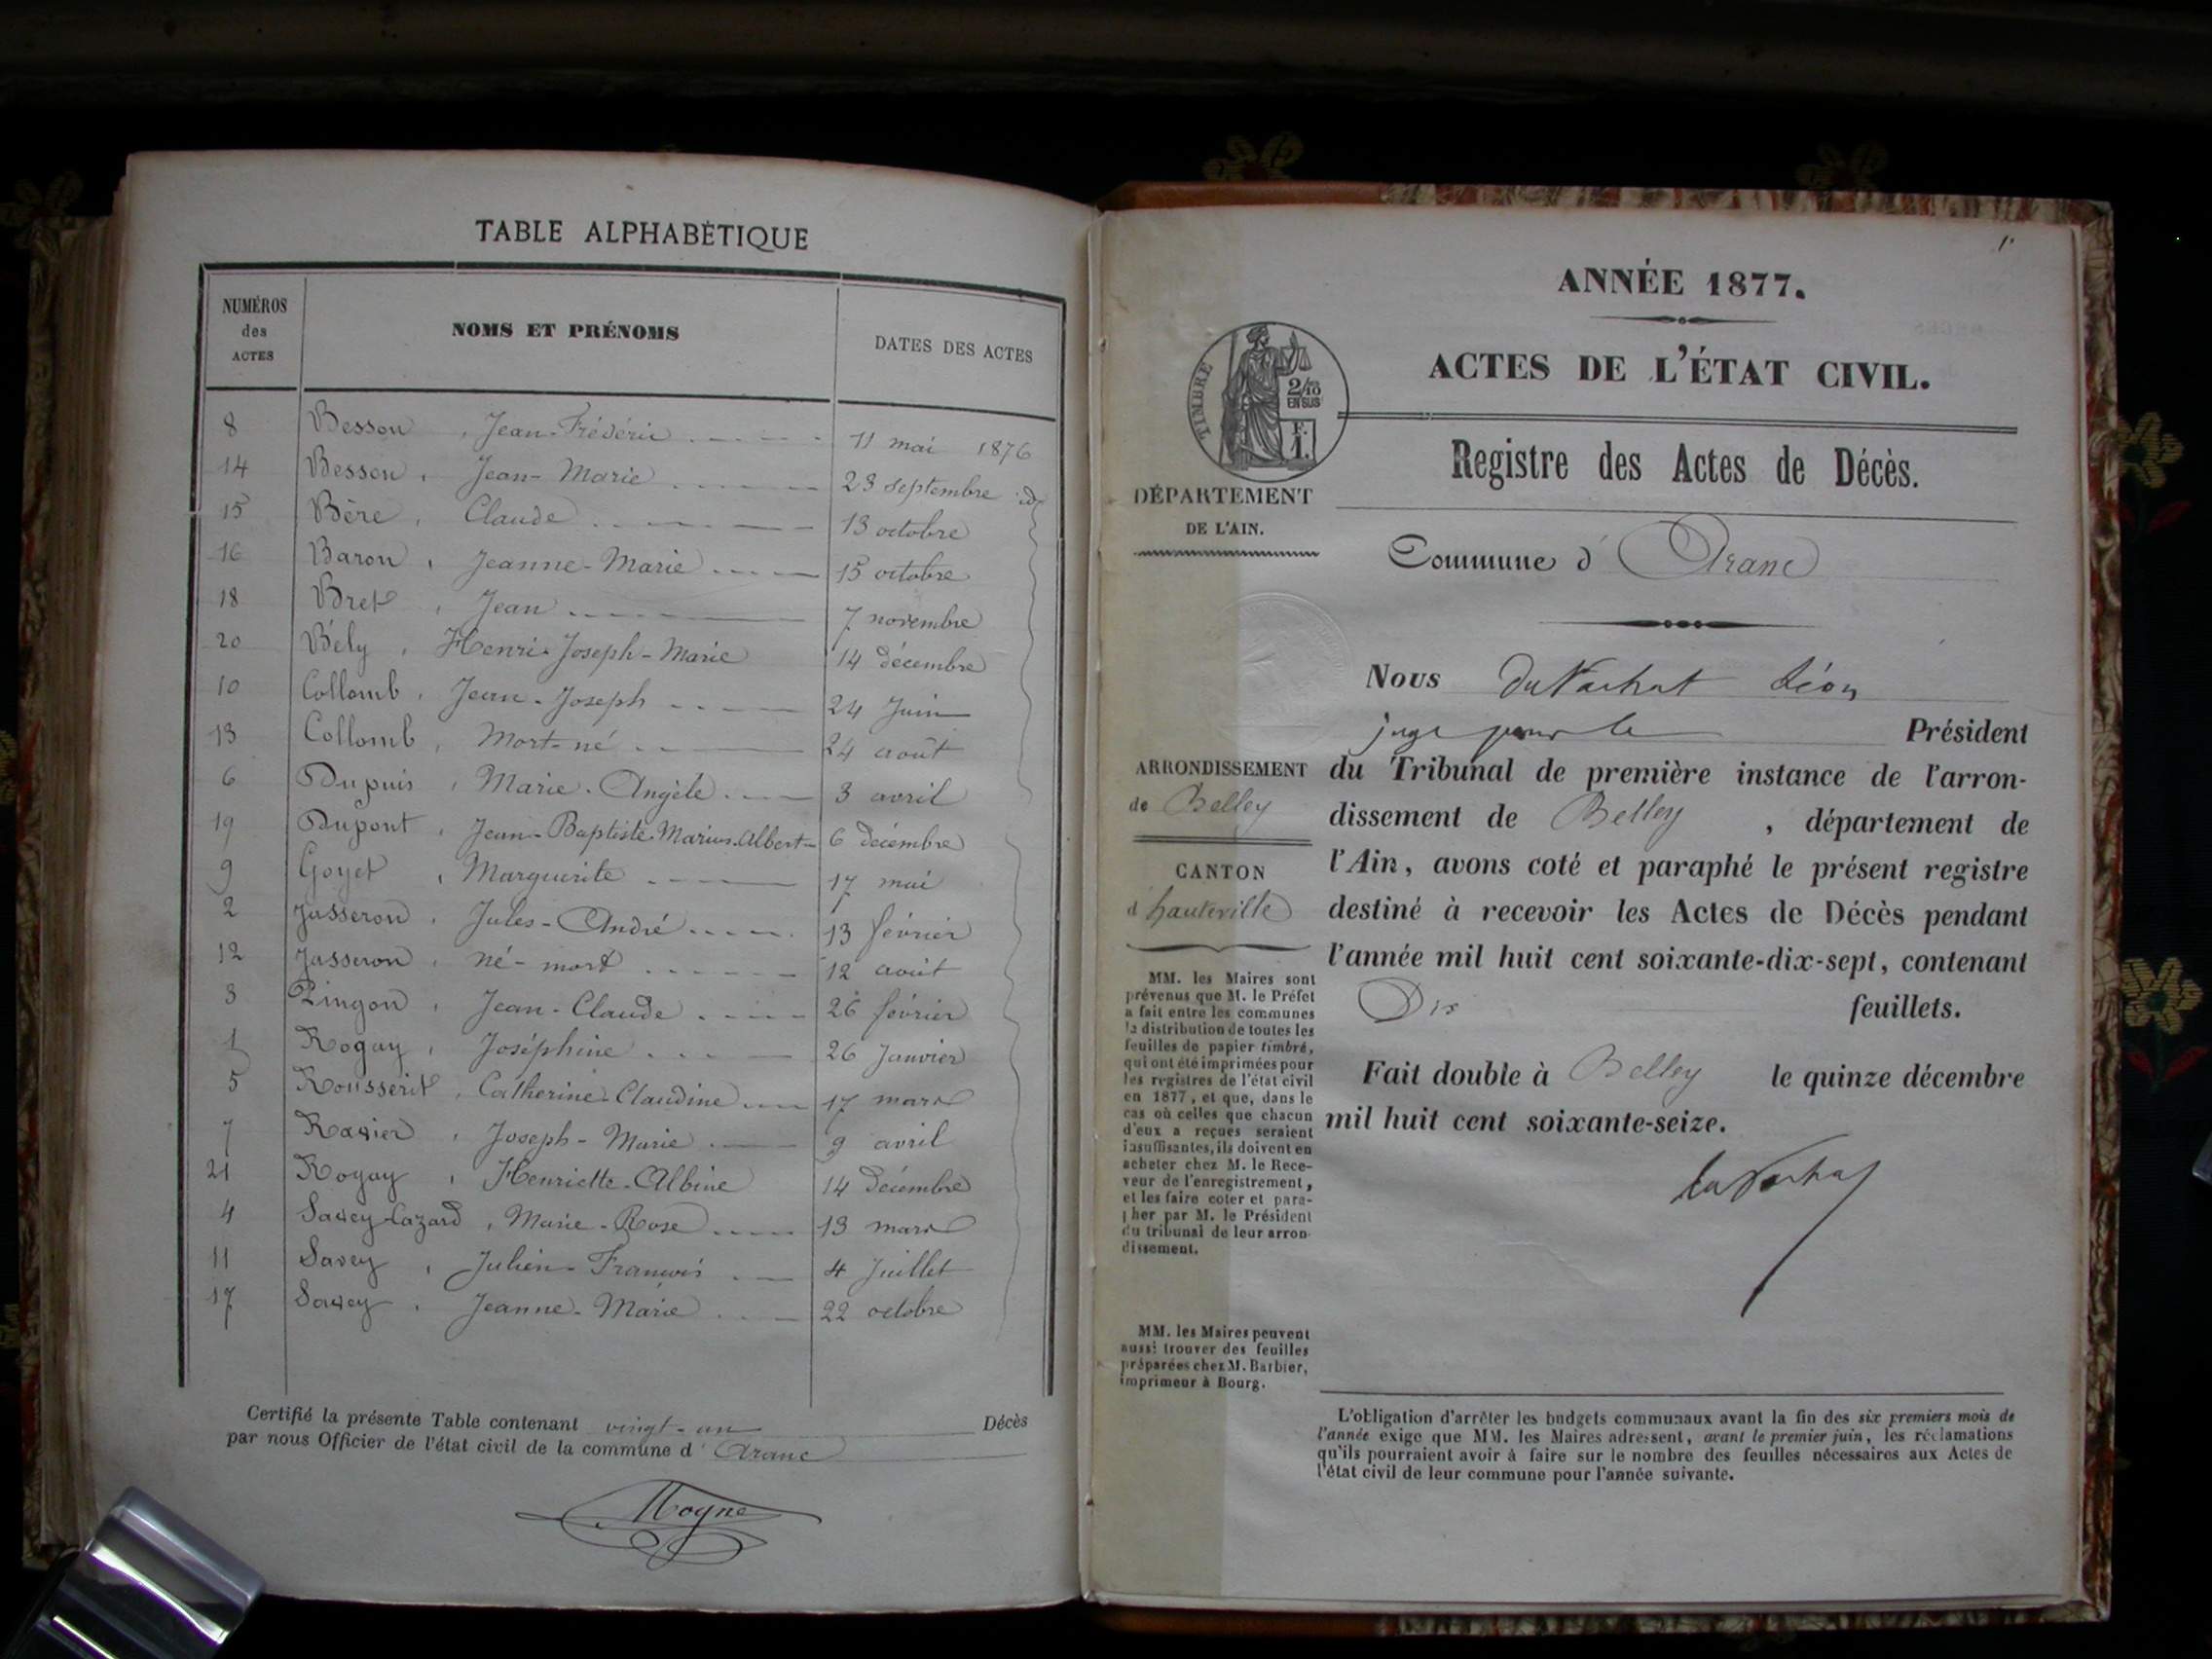 TABLE ALPHABÉTIQUE
NUMÉROS des ACTES NOMS ET PRÉNOMS DATES DES ACTES
8 Besson, Jean-Fréderic 11 mai 1876
14 Besson, Jean-Marie 23 septembre id
15 Bère, Claude 13 octobre
16 Baron, Jeanne-Marie 15 octobre
18 Bret, Jean 7 novembre
20 Bély, Henri-Joseph-Marie 14 décembre
10 Collomb, Jean-Joseph 24 Juin
13 Collomb, Mort-né 24 août
6 Dupuis, Marie-Angèle 3 avril
19 Dupont, Jean-Baptiste-Marius-Albert 6 décembre
9 Goyet, Marguerite 17 mai
2 Jasseron, Jules-André 13 février
12 Jasseron, né-mort 12 août
3 Pingon, Jean-Claude 26 février
1 Rogay, Joséphine 26 Janvier
5 Catherine-Claudine 17 mars
7 Ravier, Joseph-Marie 9 avril
21 Rogay, Henriette-Albine 14 Décembre
4 Savey-Lazard, Marie-Rose 13 mars
11 Savey, Julien-François 4 Juillet
17 Savey, Jeanne-Marie 22 octobre
Certifié la présente Table contenant vingt-un Décès
par nous Officier de l'état civil de la commune d'Aranc
Mogne
1er
ANNÉE 1877.
ACTES DE L'ÉTAT CIVIL.
TIMBRE
2/10
EN SUS
F.
1.
Registre des Actes de Décès.
DÉPARTEMENT
DE L'AIN.
Commune d'Aranc
Nous DuVachat Léon
juge pour le Président
ARRONDISSEMENT
de Belley
du Tribunal de première instance de l'arron-
dissement de Belley, département de
l'Ain, avons coté et paraphé le présent registre
CANTON
d'hauteville
destiné à recevoir les Actes de Décès pendant
l'année mil huit cent soixante-dix-sept, contenant
Dix feuillets.
Fait double à Belley le quinze décembre
mil huit cent soixante-seize.
MM. les Maires sont
prévenus que M. le Préfet
a fait entre les communes
la distribution de toutes les
feuilles de papier timbré,
qui ont été imprimées pour
les registres de l'état civil
en 1877, et que, dans le
cas où celles que chacun
d'eux a reçues seraient
insuffisantes, ils doivent en
acheter chez M. le Rece-
veur de l'enregistrement,
et les faire coter et para-
pher par M. le Président
du tribunal de leur arron-
dissement.
MM. les Maires peuvent
aussi trouver des feuilles
préparées chez M. Barbier,
imprimeur à Bourg.
L'obligation d'arrêter les budgets communaux avant la fin des six premiers mois de
l'année exige que MM. les Maires adressent, avant le premier juin, les réclamations
qu'ils pourraient avoir à faire sur le nombre des feuilles nécessaires aux Actes de
l'état civil de leur commune pour l'année suivante.